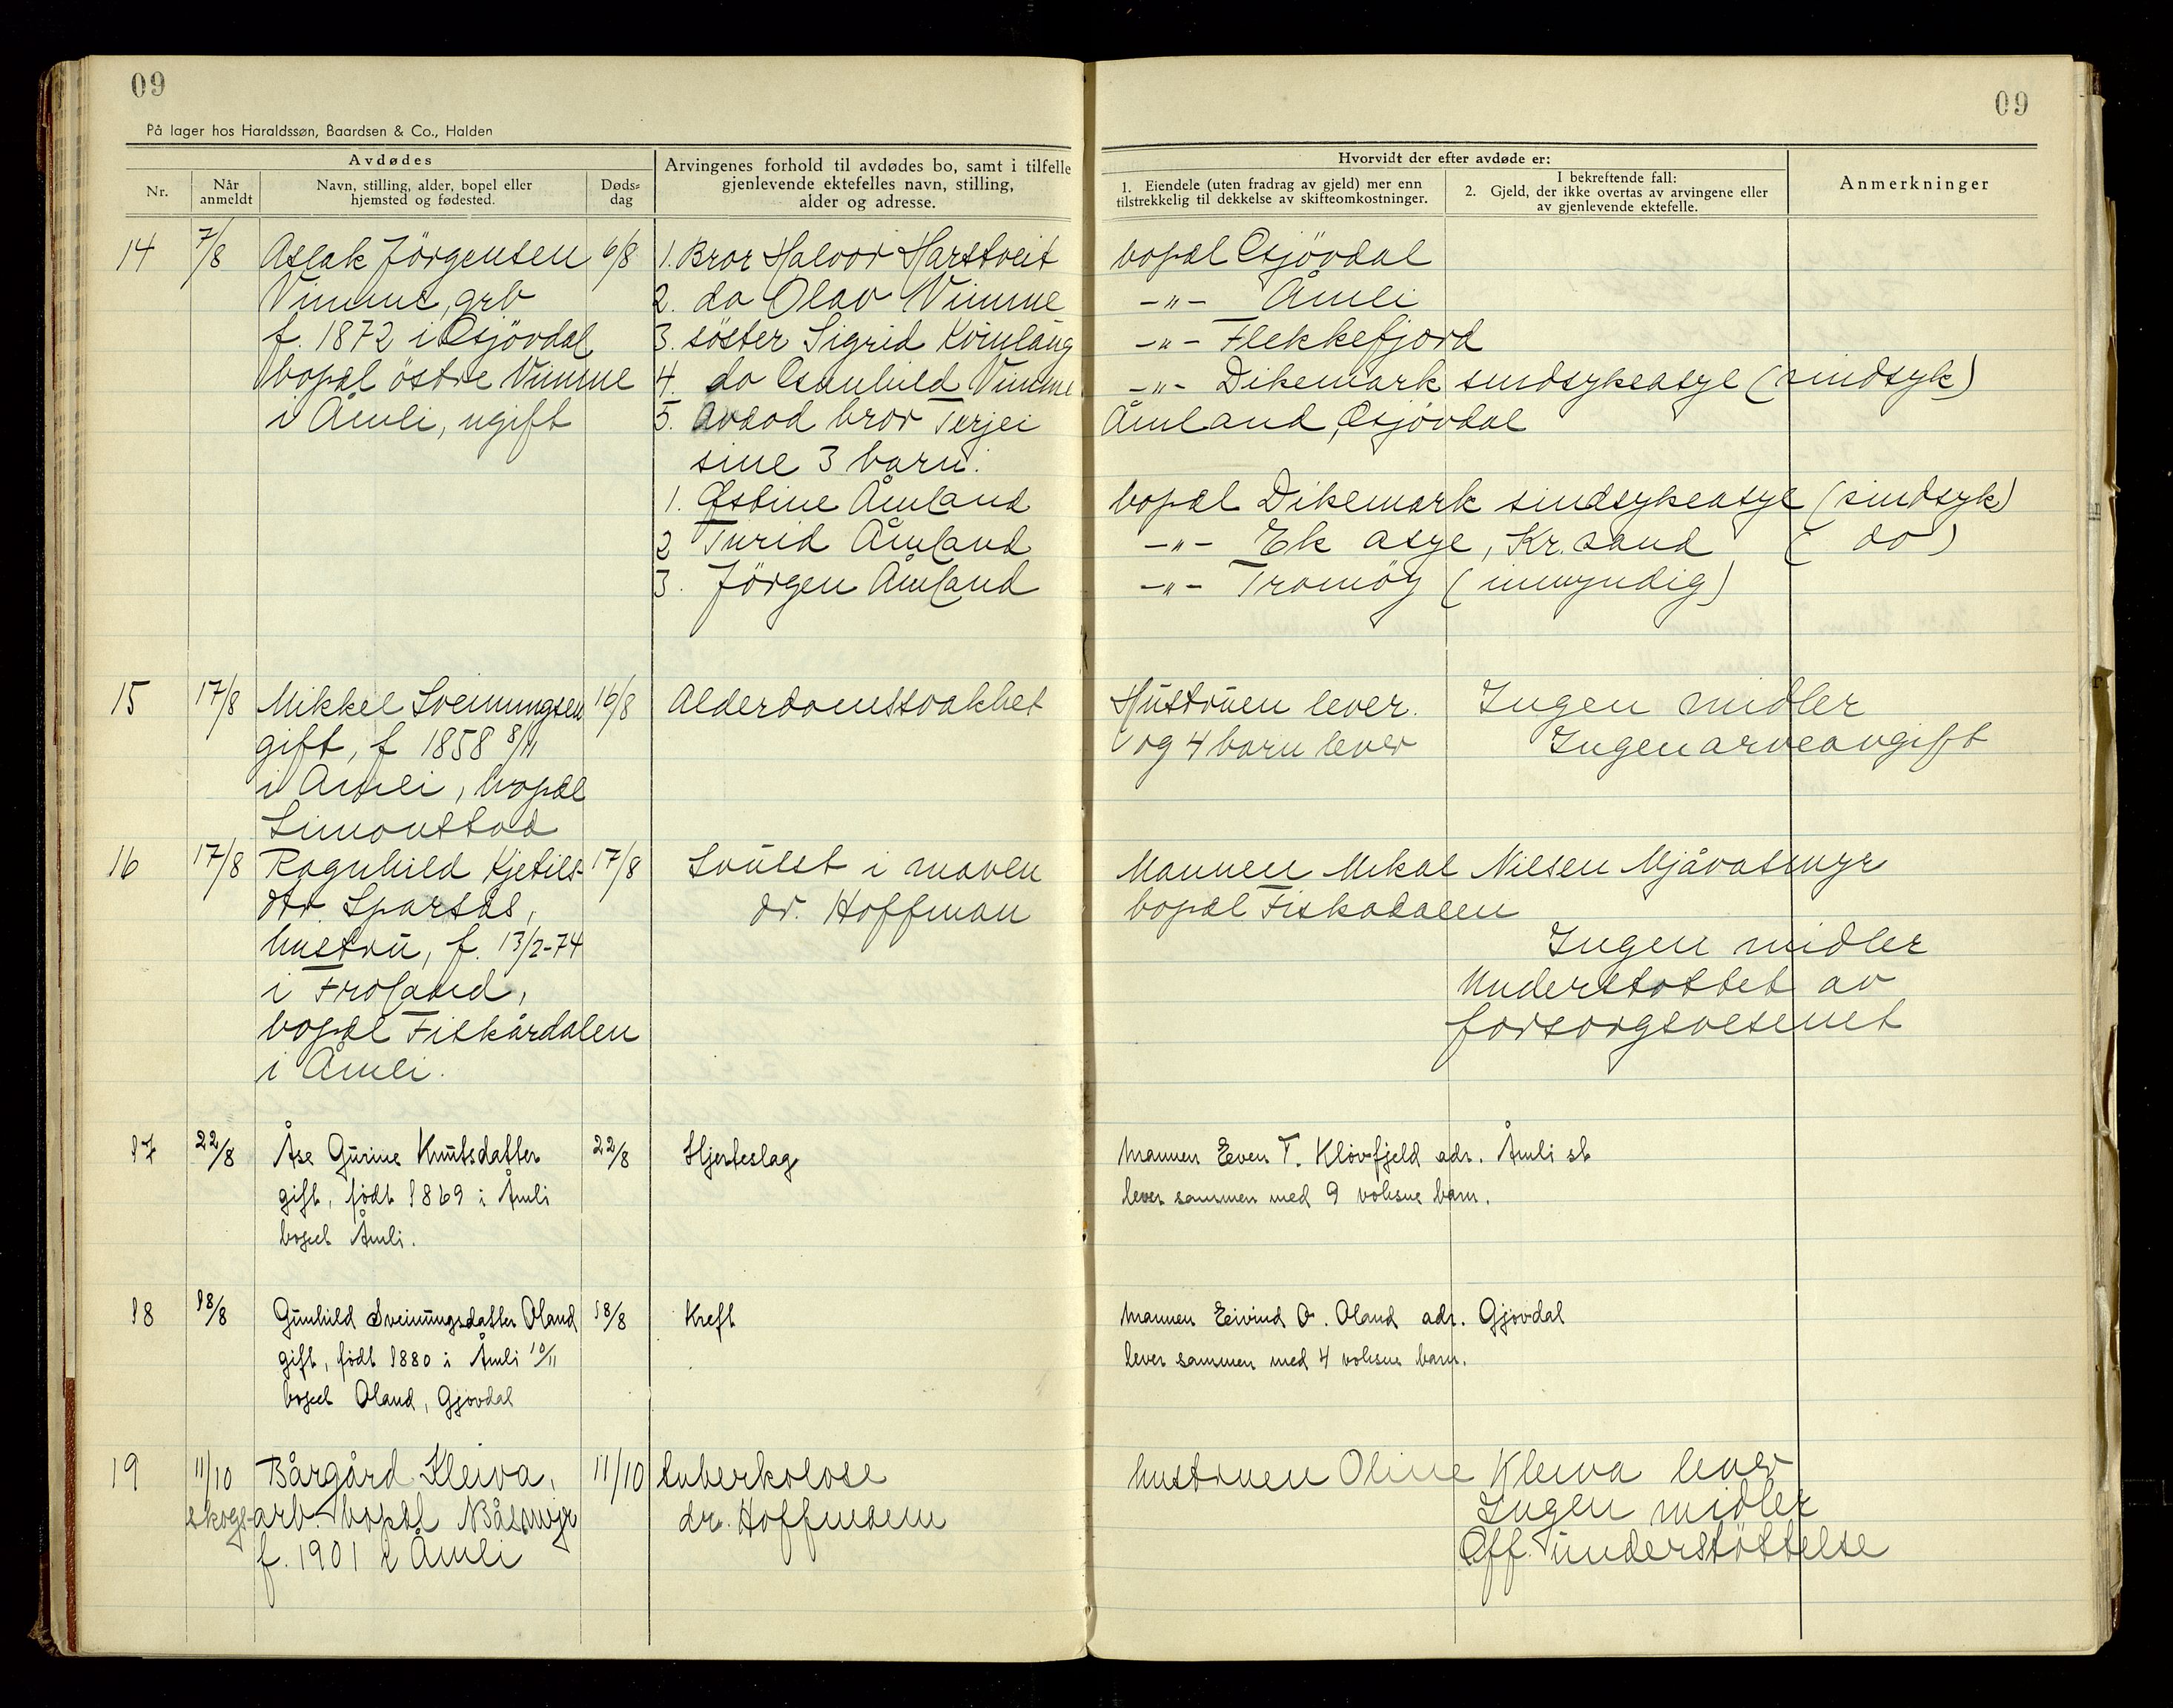 09
09
På lager hos Haraldssøn, Baardsen & Co., Halden
Avdødes
Nr.
Når anmeldt
Navn, stilling, alder, bopel eller hjemsted og fødested.
Døds=dag
Arvingenes forhold til avdødes bo, samt i tilfelle
gjenlevende ektefelles navn, stilling,
alder og adresse.
Hvorvidt der efter avdøde er:
1. Eiendele (uten fradrag av gjeld) mer enn
tilstrekkelig til dekkelse av skifteomkostninger.
I bekreftende fall:
2. Gjeld, der ikke overtas av arvingene eller
av gjenlevende ektefelle.
Anmerkninger
14 7/8 Aslak Jörgensen 6/8 1. Bror Halvor Harstveit bopæl Gjövdal
Vimme, grb 2. do Olav Vimme -"- Åmli
f. 1872 i Gjövdal 3. söster Sigrid Kvinlaug -"- Flekkefjord
bopæl östre Vimme 4. do Gunhild Vimme -"- Dikemark sindsykeasyl (sindsyk)
i Åmli, ugift 5. Avdød bror Terjei Åmland, Gjövdal
sine 3 barn.
1. Østine Åmland bopæl Dikemark sindsykeasyl (sindsyk)
2 Turid Åmland -"- Ek asyl, Kr.sand (do)
3. Jörgen Åmland -"- Tromöy (umyndig)
15 17/8 Mikkel Sveinungsen 16/8 Alderdomssvakhet Hustruen lever. Ingen midler
gift, f 1858 8/11 og 4 barn lever Ingen arveavgift
i Åmli, bopæl
Simonstad
16 17/8 Ragnhild Kjetils- 17/8 Svulst i maven Mannen Mikal Nilsen Mjåvatsmyr
dtr. Sparsås, dr. Hoffman bopæl Fiskadalen
hustru, f. 13/2-74 Ingen midler
i Froland, Understøttet av
bopæl Fiskårdalen forsorgsvesenet
i Åmli.
17 22/8 Åse Gurine Knutsdatter 22/8 Hjerteslag Mannen Even T. Klovfjeld adr. Åmli st
gift, född 1869 i Åmli lever sammen med 9 voksne barn.
bopel Åmli.
18 18/8 Gunhild Sveinungsdatter Oland 18/8 Kreft Mannen Eivind O. Oland adr. Gjovdal
gift, födt 1880 i Åmli 10/11 lever sammen med 4 voksne barn.
bopel Oland, Gjovdal
19 11/10 Bårgård Kleiva, 11/10 tuberkolose hustruen Oline Kleiva lever
skogs-arb. bopæl Nåsmyr dr. Hoffmann Ingen midler
f. 1901 i Åmli Off. understöttelse